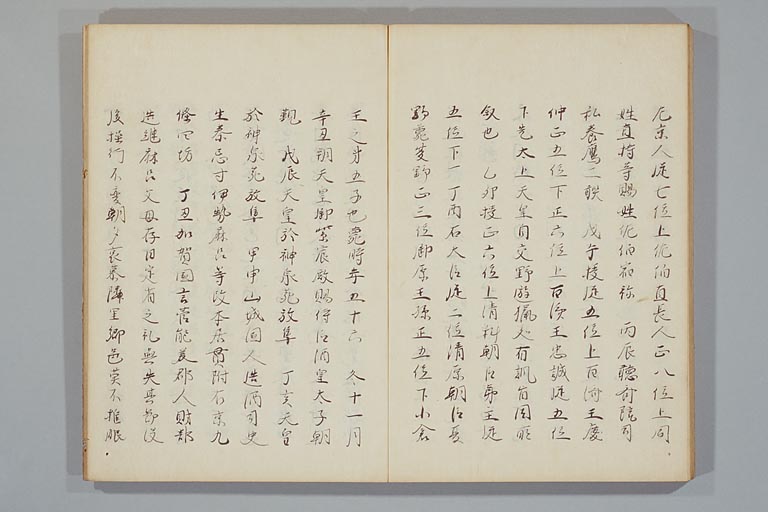 左京人從七位上佐伯直長人正八位上同
姓直持等賜姓佐伯宿祢 丙辰聽許院司
私養鷹二聯 戊午授從五位上百済王慶
仲正五位下正六位上百済王忠誠從五位
下先太上天皇自交野遊獵処有旨因所
叙也 乙卯授正六位上清科朝臣弟主從
五位下 丁酉右大臣從二位清原朝臣夏
野薨夏野正三位御原王孫正五位下小倉
王之第五子也薨時年五十六 冬十一月
辛丑朔天皇御紫宸殿賜侍臣酒皇太子朝
覲 戊辰天皇於神泉苑放隼 丁亥天皇
於神泉苑放隼 甲申山城国人造酒司史
生秦忌寸伊勢麻呂等改本居貫附右京九
條四坊 丁丑加賀国言管能美郡人財部
造継麻呂父母存日定省之礼無失其節没
後操行不変朝夕哀慕隣里郷邑莫不推服